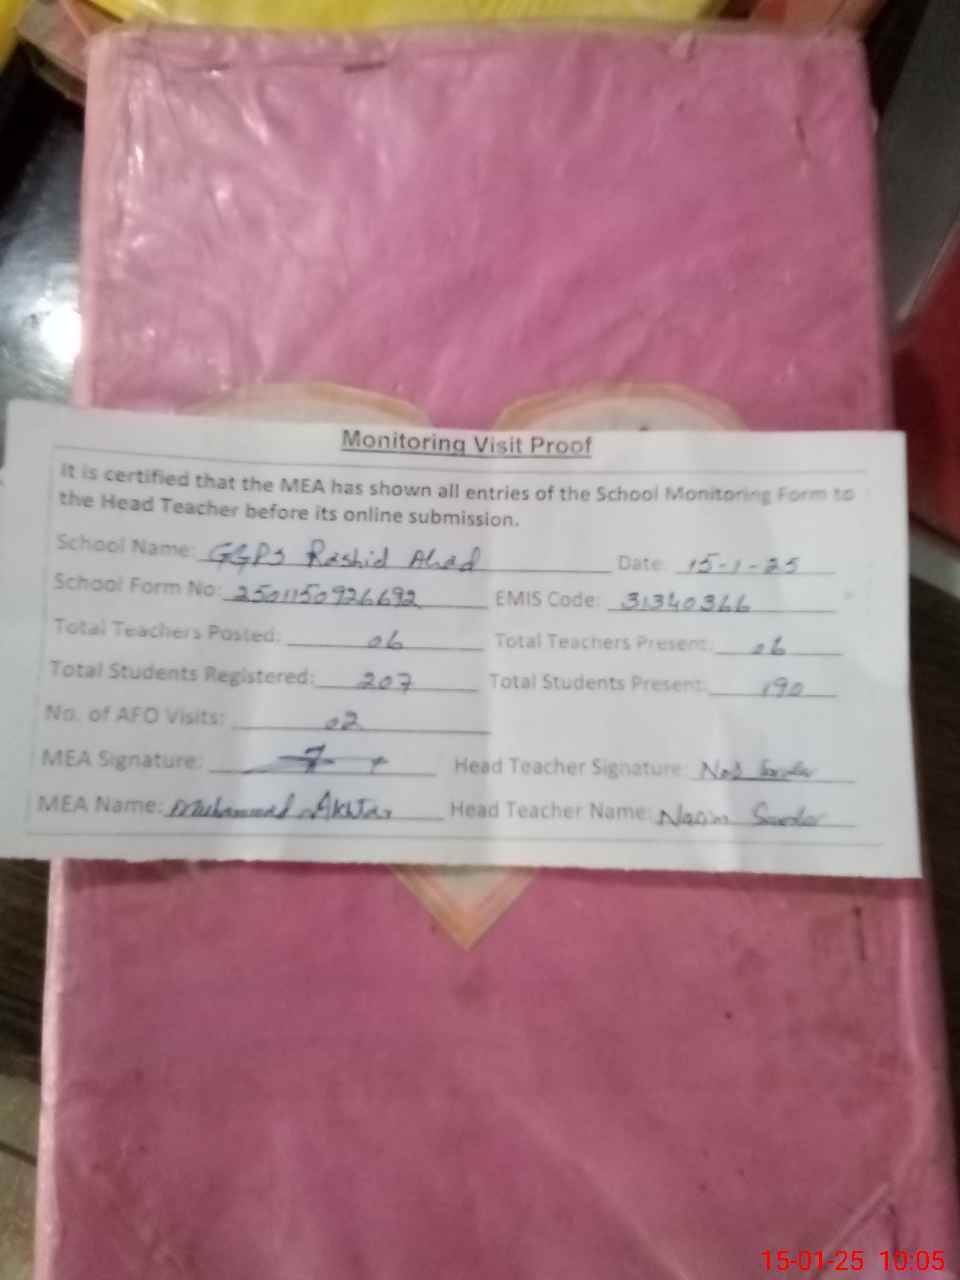 Monitoring Visit Proof
It is certified that the MEA has shown all entries of the School Monitoring Form to
the Head Teacher before its online submission.
School Name: GGPS Rashid Abad Date: 15-1-25
School Form No: 2501150926692 EMIS Code: 31340366
Total Teachers Posted: 06 Total Teachers Present: 06
Total Students Registered: 207 Total Students Present: 190
No. of AFO Visits: 02
MEA Signature: Head Teacher Signature:
MEA Name: Muhammad Akhtar Head Teacher Name:
15-01-25 10:05